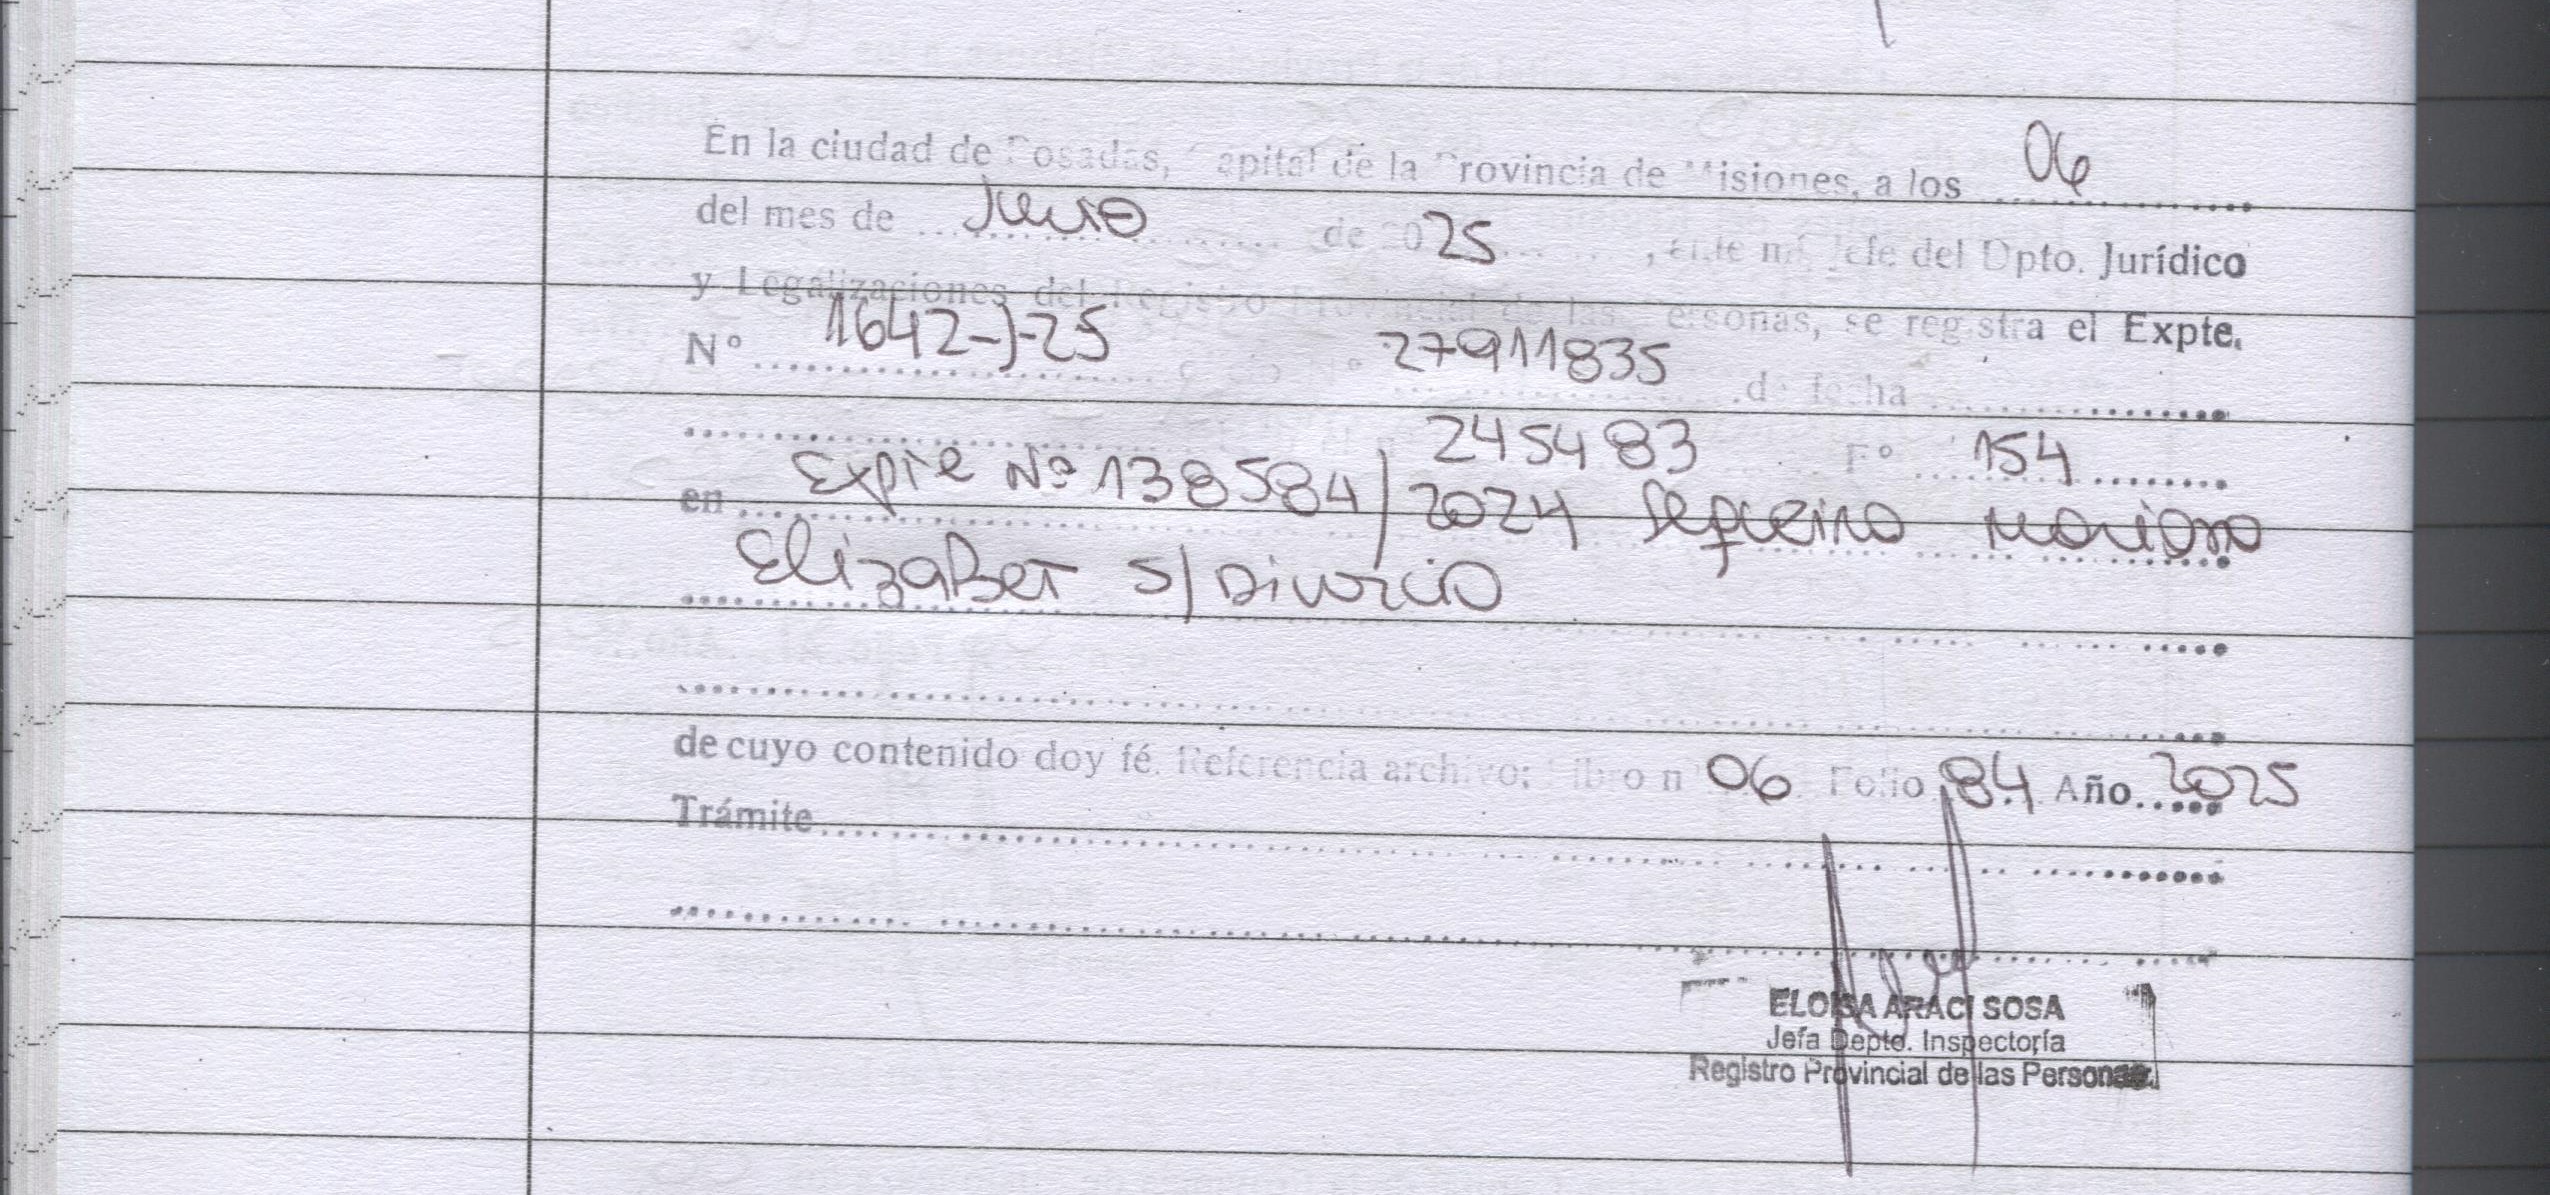 En la ciudad de Posadas, Capital de la Provincia de Misiones, a los 06
del mes de Junio de 2025, ante mí Jefe del Dpto. Jurídico
y Legalizaciones del Registro Provincial de las Personas, se registra el Expte.
Nº 1642-J-25 27911835 de fecha
245483 Fº 154
en Expte Nº 138584/2024 Sequeira Mariana
Elizabet s/ Divorcio
de cuyo contenido doy fé. Referencia archivo: Libro nº 06 Folio 84 Año 2025
Trámite
ELOISA ARACI SOSA
Jefa Depto. Inspectoría
Registro Provincial de las Personas